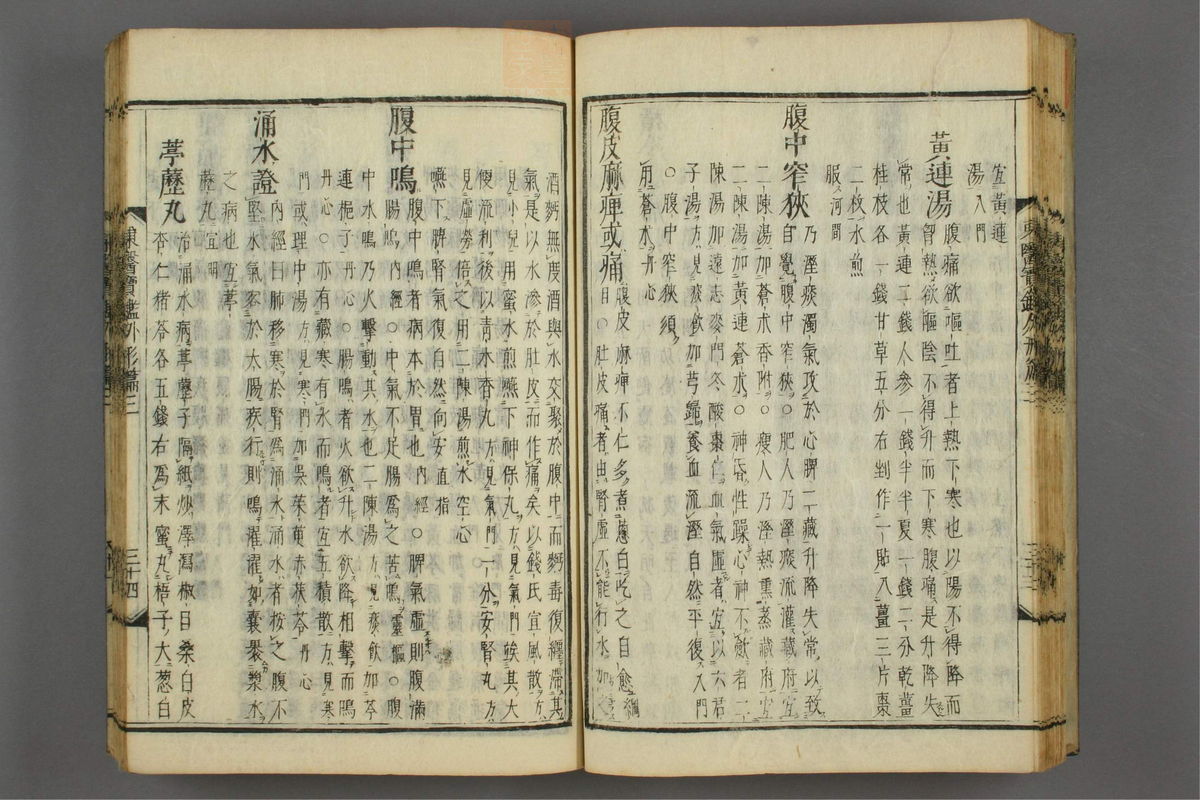 宜黃連
湯入門
黃連湯 腹痛欲嘔吐者上熱下寒也以陽不得降而
胷熱欲嘔陰不得升而下寒腹痛是升降失
常也黃連二錢人參一錢半半夏一錢二分乾薑
桂枝各一錢甘草五分右剉作一貼入薑三片棗
二枚水煎
服河間
腹中窄狹 乃溼痰濁氣攻於心脾二藏升降失常以致
自覺腹中窄狹○肥人乃溼痰流灌藏府宜
二陳湯加蒼朮香附○瘦人乃溼熱熏蒸藏府宜
二陳湯加黃連蒼朮○神昏性躁心神不斂者二
陳湯加遠志麥門冬酸棗仁血氣虛者宜以六君
子湯方見痰飮加芎歸養血流溼自然平復入門
○腹中窄狹須
用蒼朮丹心
腹皮麻痺或痛 腹皮麻痺不仁多煮葱白吃之自愈綱
○肚皮痛者由腎虛不能行水加之
酒麪無度酒與水交聚於腹中而麪毒復纏滯其
氣是以水滲於肚皮而作痛矣以錢氏宣風散方
見小兒用蜜水煎嚥下神保丸方見氣門候其大
便流利後以靑木香丸方見氣門一分安腎丸方
見虛勞倍之用二陳湯煎水空心
嚥下脾腎氣復自然向安直指
腹中鳴 腹中鳴者病本於胃也內經○脾氣虛則腹滿
腸鳴內經○中氣不足腸爲之苦鳴靈樞○腹
中水鳴乃火擊動其水也二陳湯方見痰飮加芩
連梔子丹心○腸鳴者火飮升水飮降相擊而鳴
丹心○亦有藏寒有水而鳴者宜五積散方見寒
門或理中湯方見寒門加吳茱萸赤茯苓丹心
涌水證 內經曰肺移寒於腎爲涌水涌水者按之腹不
堅水氣客於太腸疾行則鳴濯濯如囊褁漿水
之病也宜葶
藶丸宣明
葶藶丸 治涌水病葶藶子隔紙炒澤瀉椒目桑白皮
杏仁猪苓各五錢右爲末蜜丸梧子大葱白
東醫寶鑑外形篇三
三十四
東醫寶鑑外形篇三
三十三